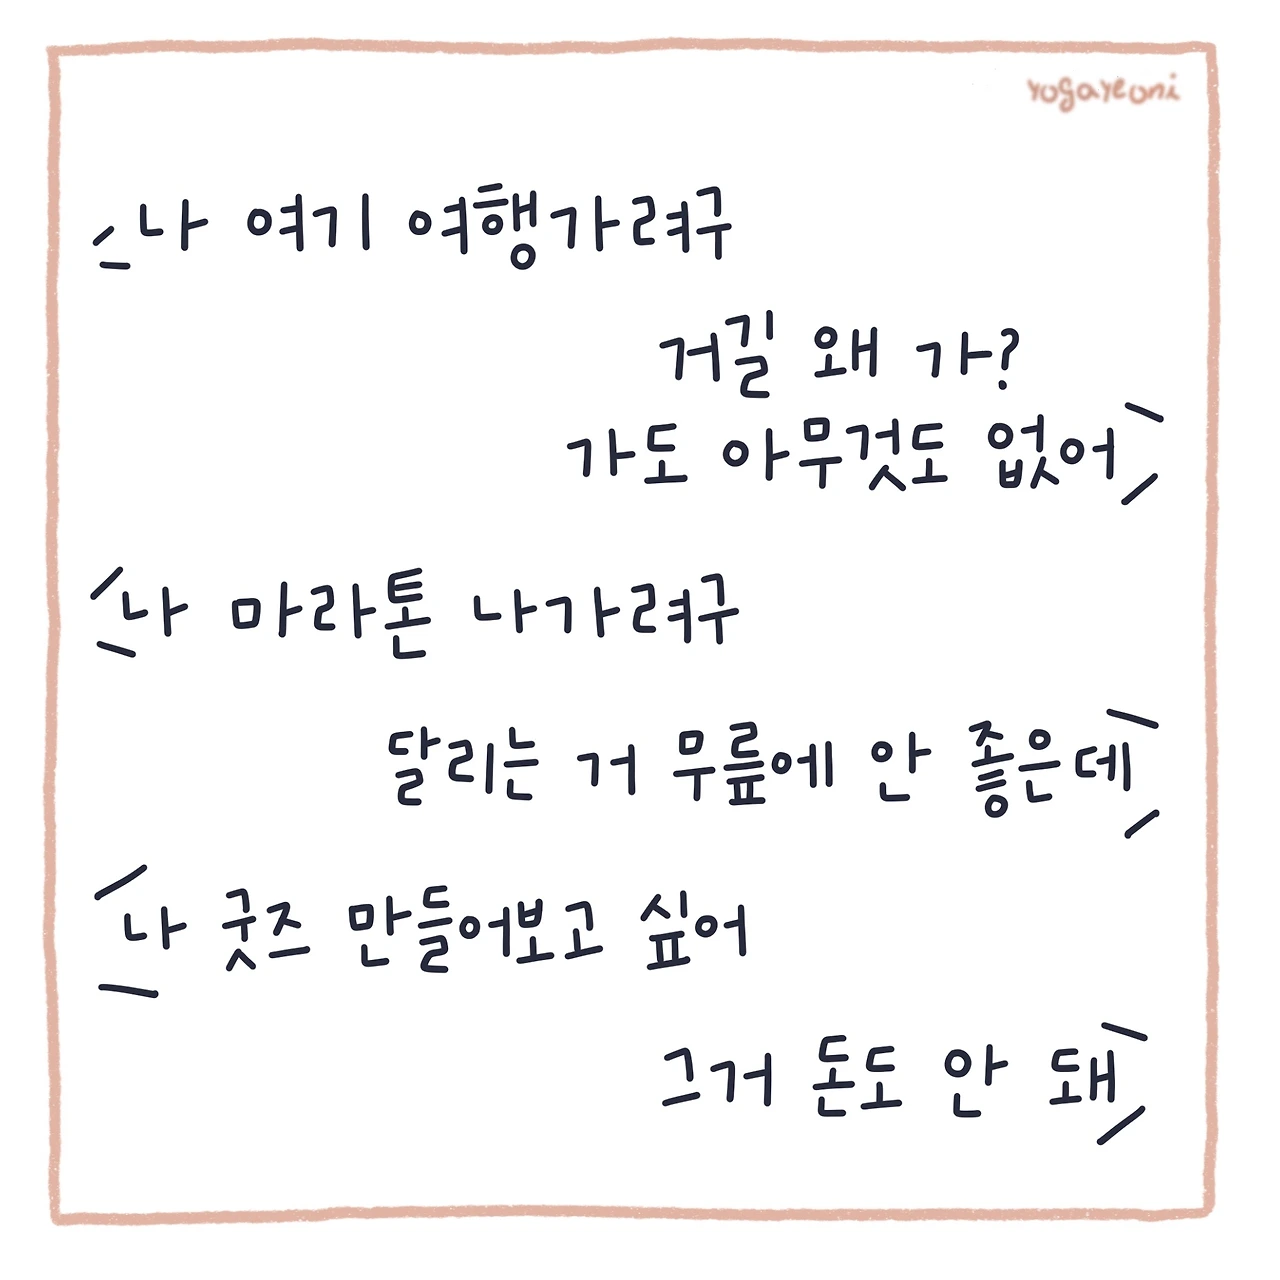 yogayeoni
나 여기 여행가려구
거길 왜 가?
가도 아무것도 없어
나 마라톤 나가려구
달리는 거 무릎에 안 좋은데
나 굿즈 만들어보고 싶어
그거 돈도 안 돼